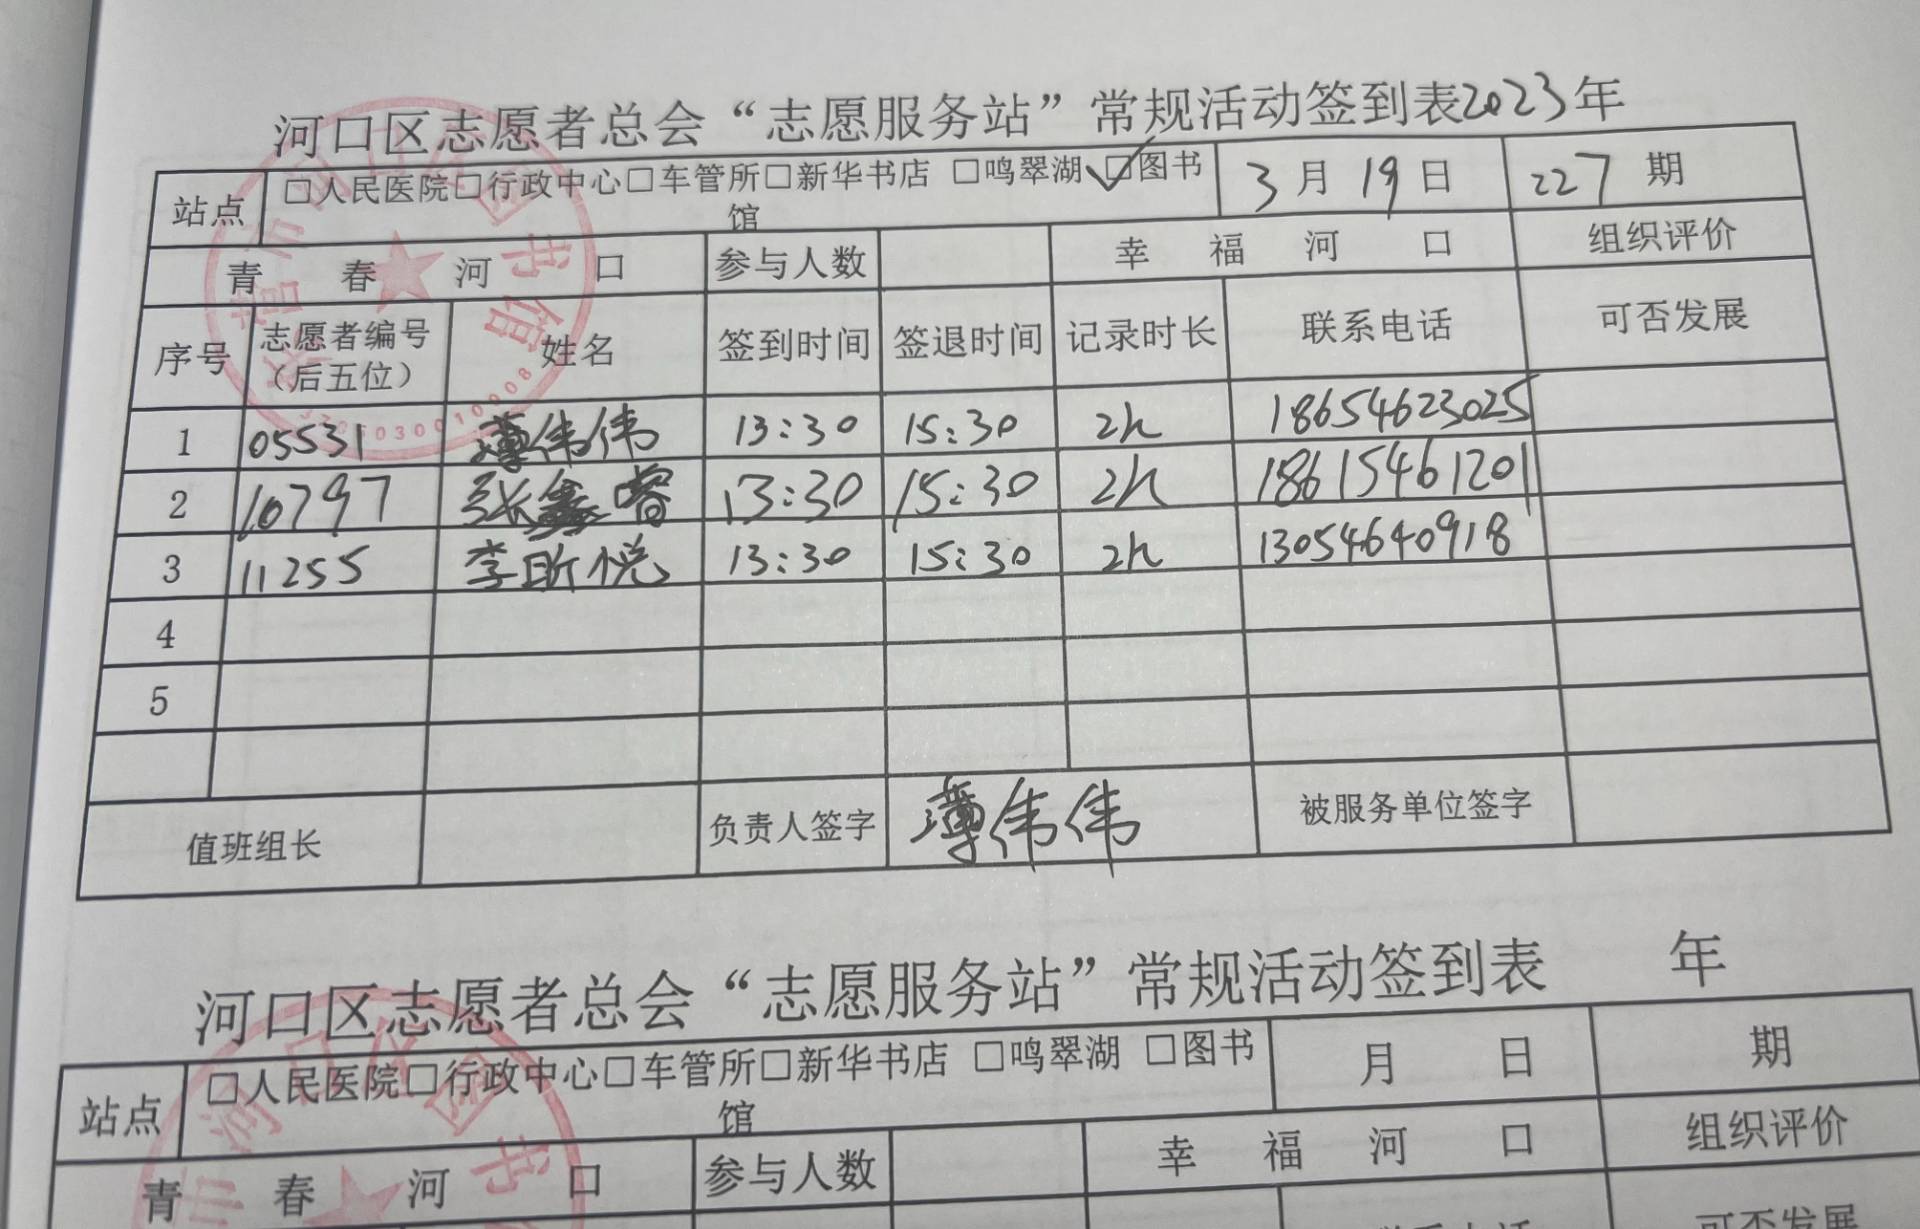 河口区志愿者总会“志愿服务站”常规活动签到表2023年
站点 □人民医院□行政中心□车管所□新华书店 □鸣翠湖 ☑图书馆 3月19日 227期
青春河口 参与人数 幸福河口 组织评价
序号 志愿者编号（后五位） 姓名 签到时间 签退时间 记录时长 联系电话 可否发展
1 05531 薄伟伟 13:30 15:30 2h 18654623025
2 10797 张鑫睿 13:30 15:30 2h 18615461201
3 11255 李昕悦 13:30 15:30 2h 13054640918
4
5
值班组长 负责人签字 薄伟伟 被服务单位签字
河口区志愿者总会“志愿服务站”常规活动签到表 年
站点 □人民医院□行政中心□车管所□新华书店 □鸣翠湖 □图书馆 月 日 期
青春河口 参与人数 幸福河口 组织评价
联系电话 可否发展